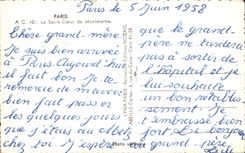 Paris le 5 Juin 1958
PARIS
A C. 101. Le Sacré-Cœur de Montmartre.
Chère grand-mère
Je suis bien arrivée
à Paris. Aujourd'hui
il fait bon. Je te
remercie de m'avoir
bien fait passer
les quelques jours
que j'étais au
chez toi. J'espère
que le grand-
père ne tardera
pas à sortir de
l'hôpital et je
lui souhaite
un bon rétablis
sement.
t'embrasse bien
fort. Le bonjour
grand père